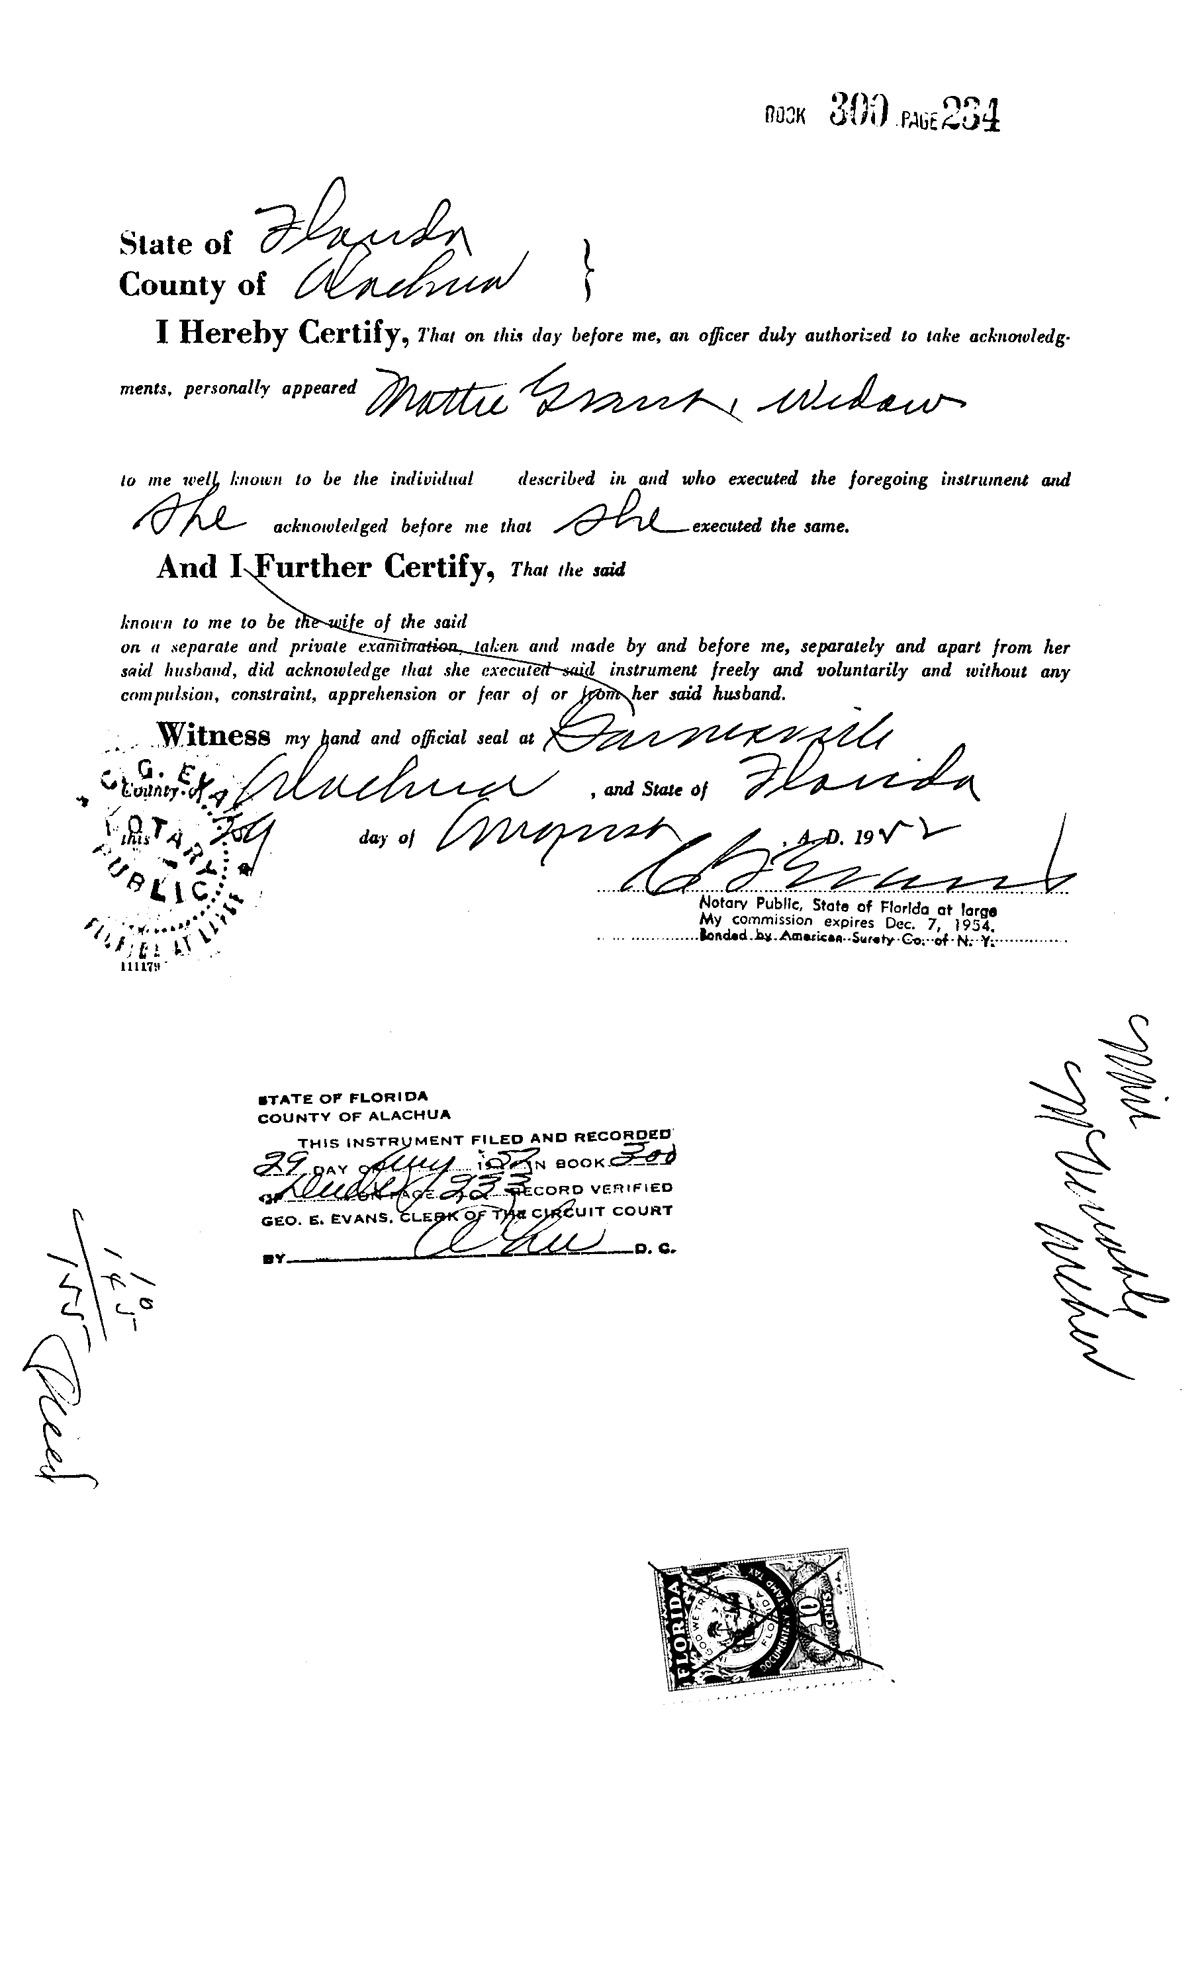 BOOK 300 PAGE 234
State of Florida
County of Alachua
I Hereby Certify, That on this day before me, an officer duly authorized to take acknowledg-
ments, personally appeared Mattie Grant, widow
to me well known to be the individual described in and who executed the foregoing instrument and
She acknowledged before me that she executed the same.
And I Further Certify, That the said
known to me to be the wife of the said
on a separate and private examination, taken and made by and before me, separately and apart from her
said husband, did acknowledge that she executed said instrument freely and voluntarily and without any
compulsion, constraint, apprehension or fear of or from her said husband.
Witness my hand and official seal at Gainesville
County of Alachua, and State of Florida
this 29 day of August, A. D. 1952
Notary Public, State of Florida at large
My commission expires Dec. 7, 1954.
Bonded by American Surety Co. of N. Y.
NOTARY
PUBLIC
FLORIDA AT LARGE
111179
STATE OF FLORIDA
COUNTY OF ALACHUA
THIS INSTRUMENT FILED AND RECORDED
29 DAY OF Aug 1952 IN BOOK 300
OF Deeds ON PAGE 233 RECORD VERIFIED
GEO. E. EVANS, CLERK OF THE CIRCUIT COURT
BY D. C.
10
145
155
FLORIDA
GOD WE TRUST
FLORIDA
DOCUMENTARY STAMP TAX
10
CENTS